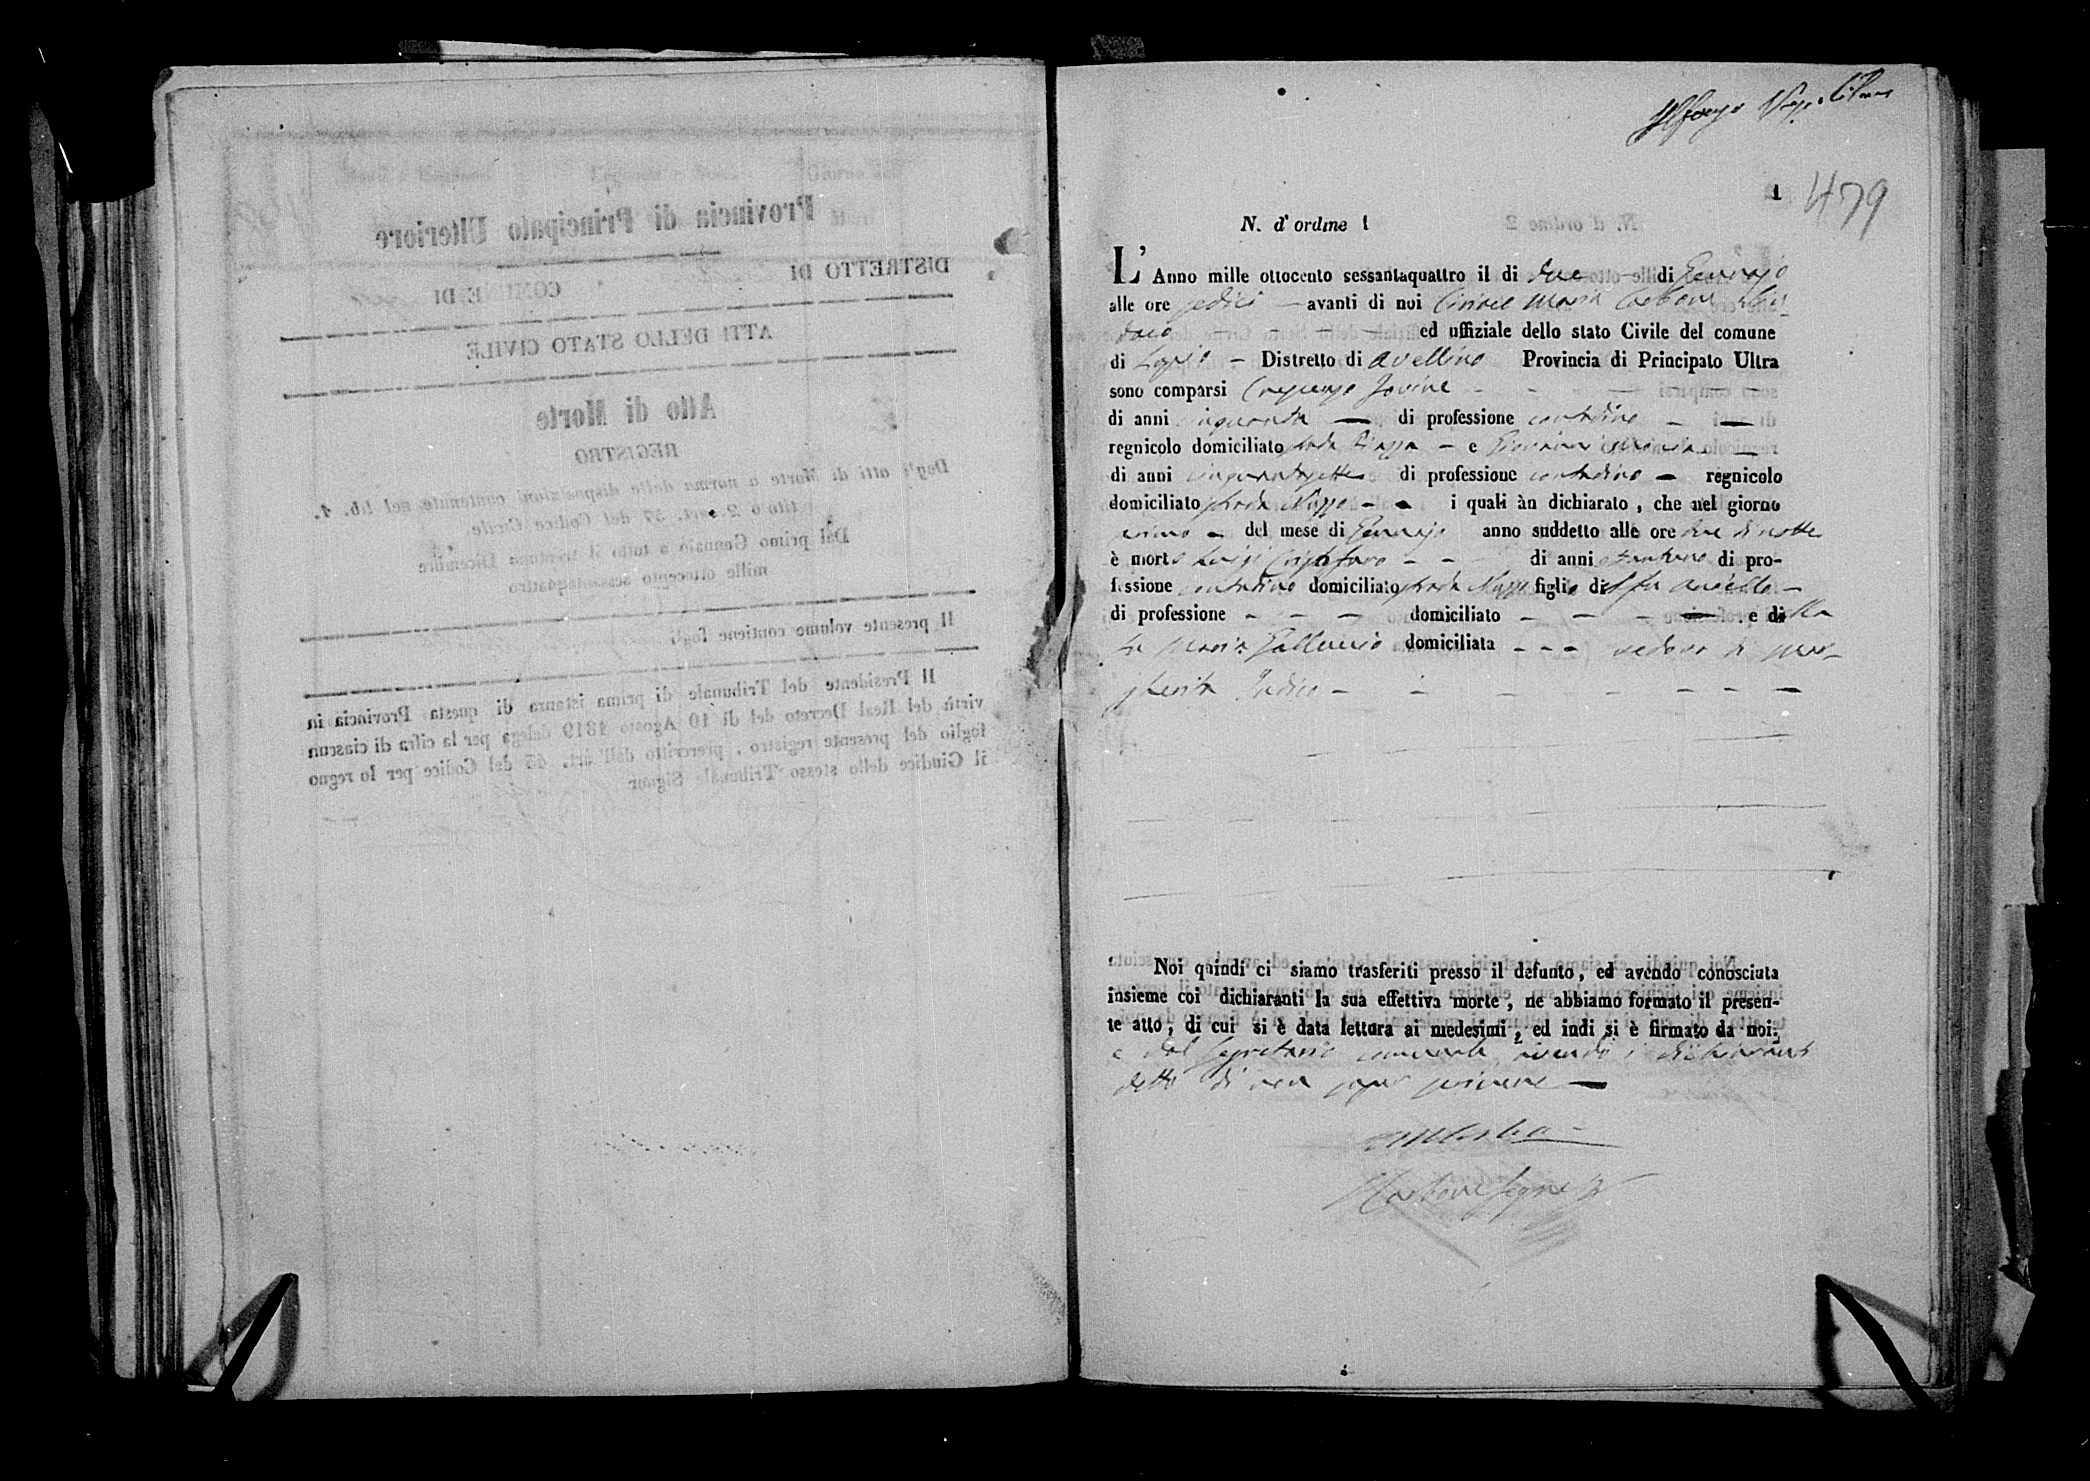 Provincia di Principato Ulteriore
DISTRETTO DI COMUNE DI
ATTI DELLO STATO CIVILE
Atto di Morte
REGISTRO
Degli atti di Morte a norma delle disposizioni contenute nel lib. 1.
titolo 2. art. 57 del Codice Civile
Dal primo Gennaio a tutto il trentuno Dicembre
mille ottocento sessantaquattro
Il presente volume contiene fogli
Il Presidente del Tribunale di prima istanza di questa Provincia in
virtù del Real Decreto del dì 10 Agosto 1819 delega per la cifra di ciascun
foglio del presente registro, prercritto dall'art. 45 del Codice per lo regno
il Giudice dello stesso Tribunale Signor
1 479
N. d'ordine 1
L'Anno mille ottocento sessantaquattro il dì due di Gennajo
alle ore sedici avanti di noi Maria Carbone Sin-
daco ed uffiziale dello stato Civile del comune
di Distretto di Avellino Provincia di Principato Ultra
sono comparsi Crescenzo Iovine
di anni cinquanta di professione contadino
regnicolo domiciliato strada Piazza e Giovanni
di anni cinquantasette di professione contadino regnicolo
domiciliato strada i quali àn dichiarato, che nel giorno
primo del mese di Gennajo anno suddetto alle ore due di notte
è morto Luigi di anni di pro-
fessione contadino domiciliato strada figlio del fu Aniello
di professione domiciliato e di della
fu Maria domiciliata vedovo di Mar-
gherita
Noi quindi ci siamo trasferiti presso il defunto, ed avendo conosciuta
insieme coi dichiaranti la sua effettiva morte, ne abbiamo formato il presen-
te atto, di cui si è data lettura ai medesimi, ed indi si è firmato da noi,
e dal Segretario comunale, avendo i dichiaranti
detto di non saper scrivere
Carbone